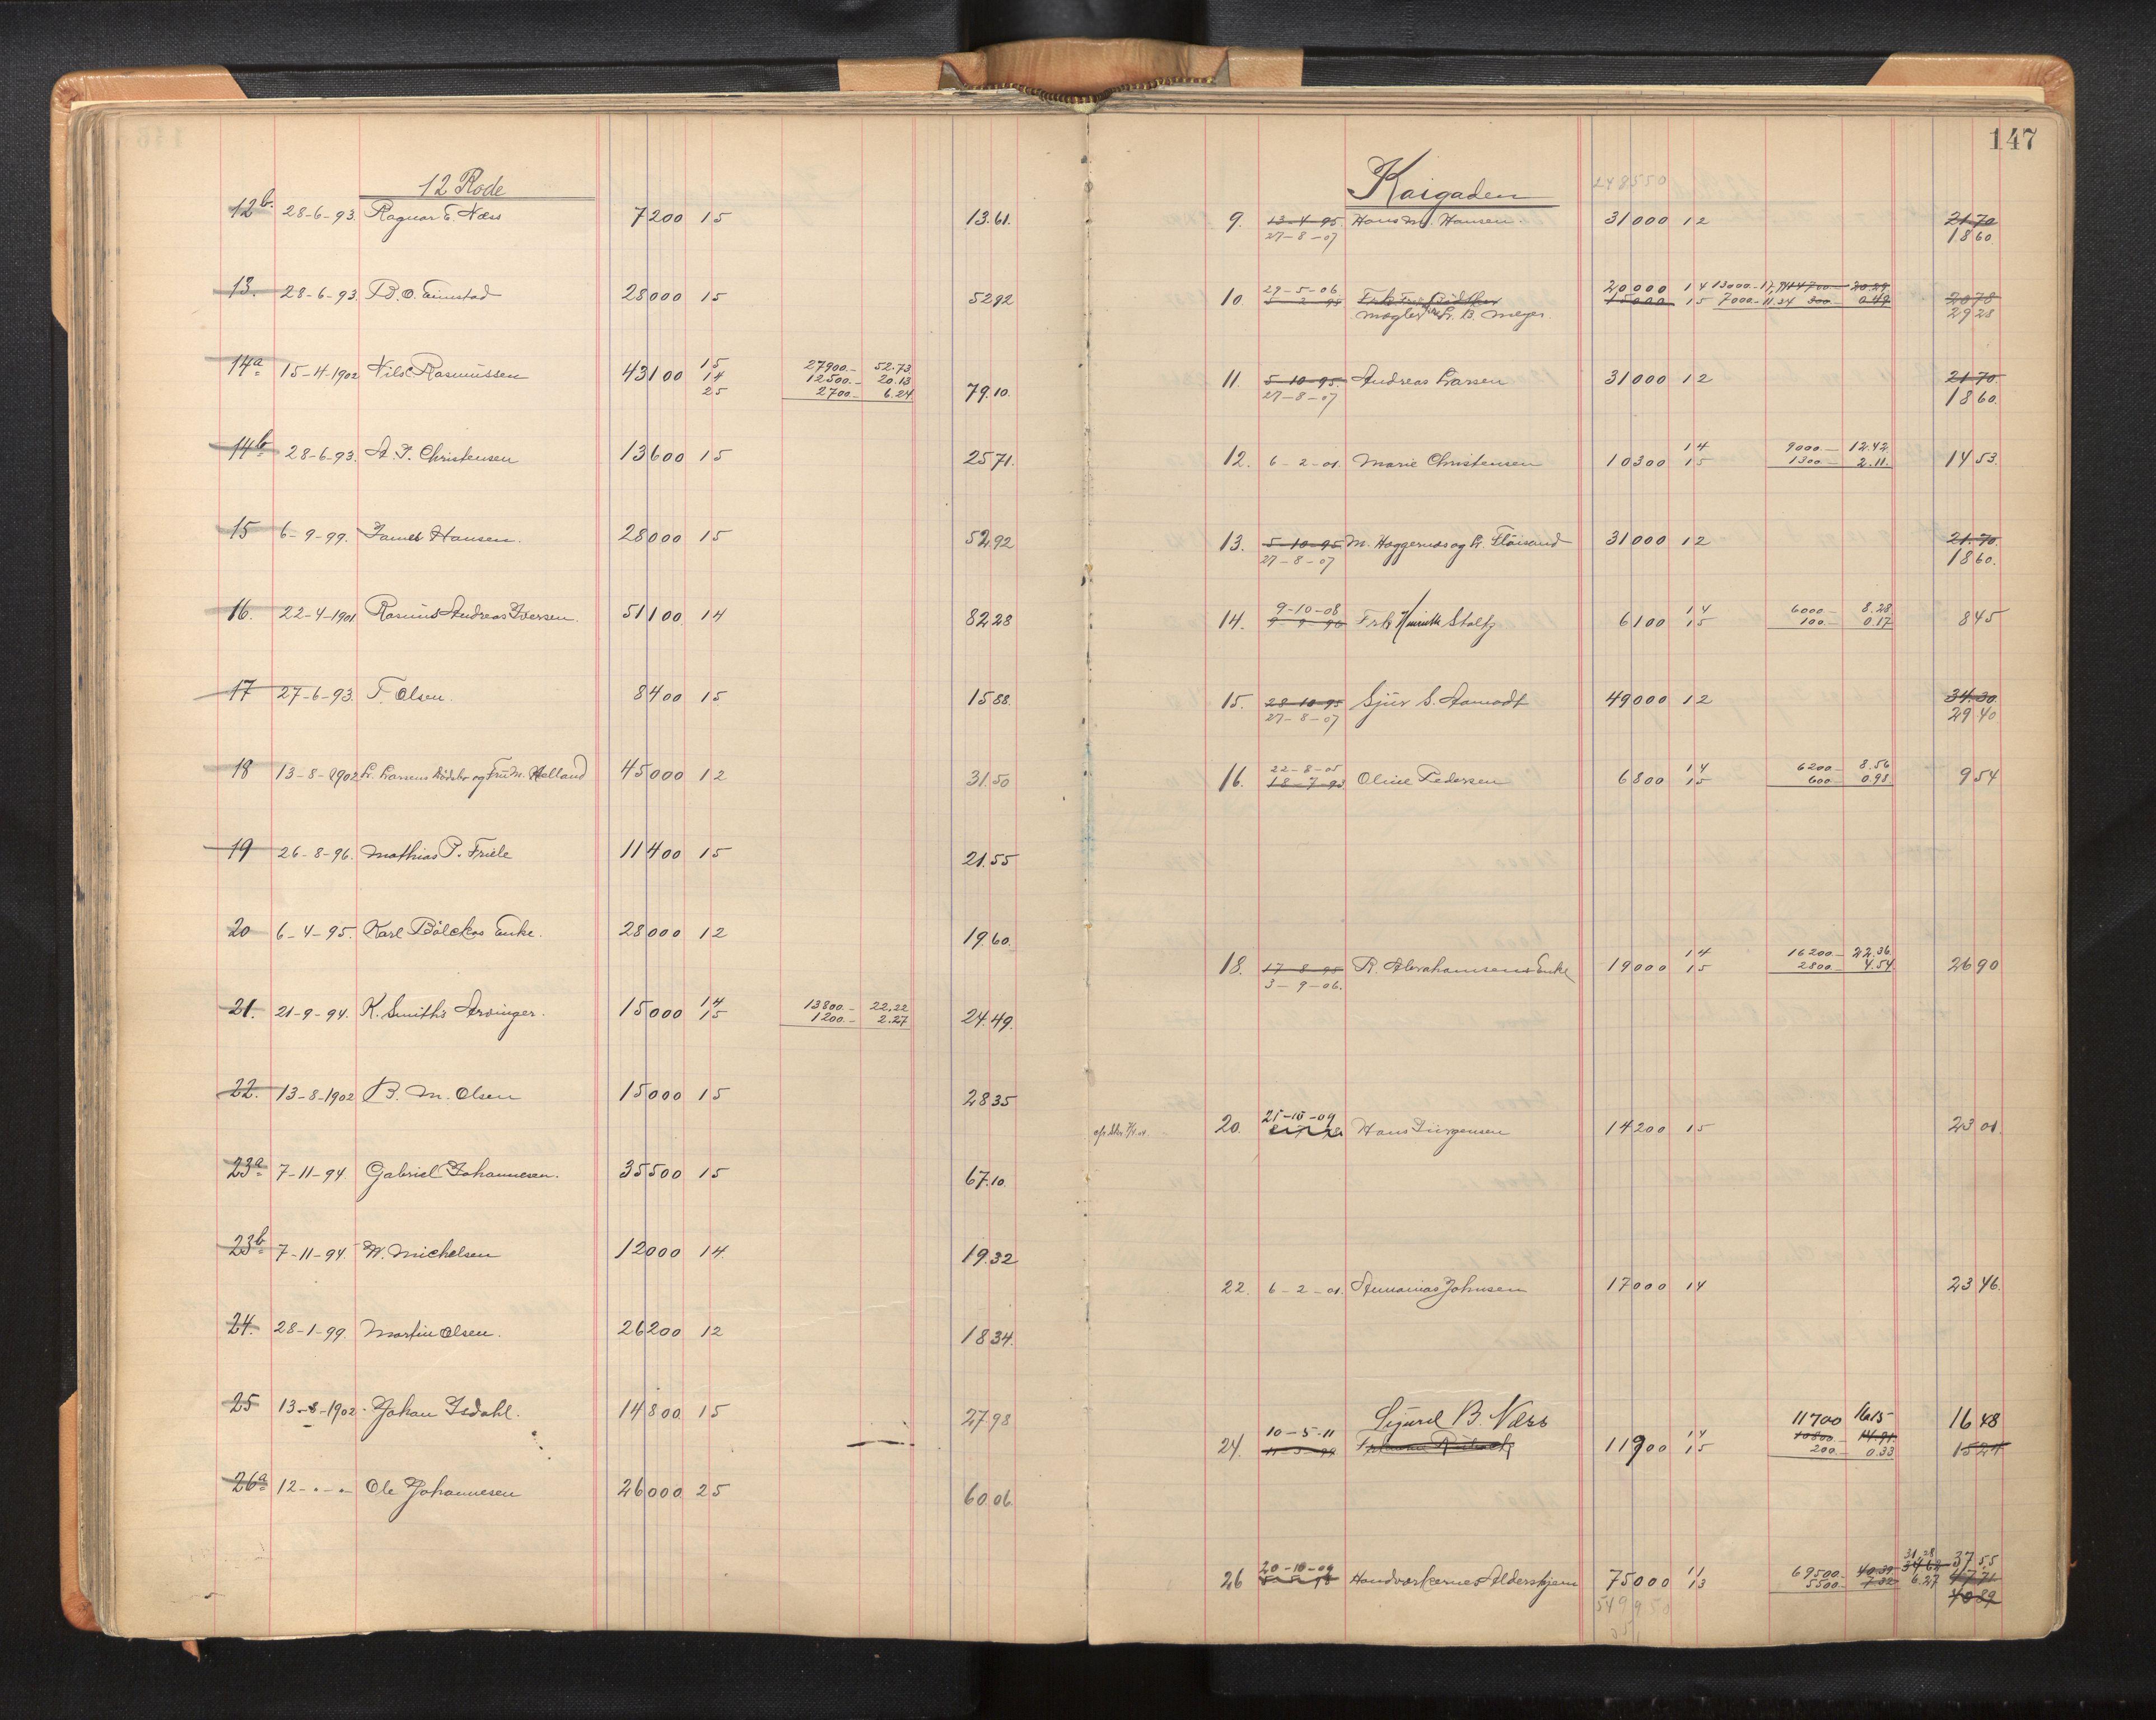 12 Rode
12b. 28-6-93. Ragnar E. Næss 7200 15 13.61.
13. 28-6-93. B. O. Eimstad 28000 15 52 92
14a 15-4-1902 Nils Rasmussen 43100 15 27900.- 52.73
14 12500.- 20.13
25 2700.- 6.24 79.10.
14b 28-6-93. A. T. Christensen 13600 15 25 71.
15 6-9-99. James Hansen. 28000 15 52 92
16. 22-4-1901 Rasmus Andreas Iversen. 51100 14 82 28
17 27-6-93. T. Olsen. 8400 15 15 88.
18 13-8-1902 L. Larsens og Fru M. Helland 45000 12 31.50
19 26-8-96. Mathias P. Friele 11400 15 21.55
20 6-4-95. Karl Bölckos Enke. 28000 12 19 60.
21. 21-9-94. K. Smiths Arvinger. 15000 14 13800.- 22.22
15 1200.- 2.27 24.49.
22. 13-8-1902 B. M. Olsen 15000 15 28 35
23a 7-11-94. Gabriel Johannesen. 35500 15 67.10
23b 7-11-94. W. Michelsen 12000 14. 19.32
24. 28-1-99. Martin Olsen. 26200 12 18 34.
25 13-8-1902 Johan Isdahl. 14800 15 27 98
26a 12-"-" Ole Johannesen 26000 25 60 06.
147
Kaigaden
248550
9. 13-4-95. Hans M. Hansen. 31000 12 21.70
27-8-07 18 60.
10. 29-5-06 20000 14 13000.- 17,94 14700.- 20.29
5-2-95 15000 15 7000.- 11.34 300.- 0.49 20 78
Mægler Chr. B. Meyer 29 28
11. 5-10-95. Andreas Larsen 31000 12 21 70.
27-8-07 18 60.
12. 6-2-01. Marie Christensen 10300 14 9000.- 12.42
15 1300.- 2.11. 14 53.
13. 5-10-95 M. Haggernes og L. Fløisand 31000 12 21.70.
27-8-07 18 60.
14. 9-10-08 Frk Henriette Stoltz 6100 14 6000.- 8.28
9-9-96 15 100.- 0.17 8 45
15. 28-10-95 Sjur S. Aamodt 49000 12 34.30
27-8-07 29 40
16. 22-8-05 Oline Pedersen 6800 14 6200.- 8.56
18-7-93 15 600.- 0.98 9 54
18. 17-8-98 R. Abrahamsens Enke 19000 14 16200.- 22.36
3-9-06. 15 2800.- 4.54 26 90
20. 25-10-09 Hans Jürgensen 14200 15 23 01.
22. 6-2-01. Annanias Johnsen 17000 14 23 46.
Sigurd B. Næss
24. 10-5-11 11900 14 11700 16.15 16 48
15 10800.- 14.91
200.- 0.33 15 24
26 20-10-09 Haandværkernes Aldershjem 75000 11 69500.- 40.39 31,28 34,62 37 55
13 5500.- 7.32 6.27 47 71
40 89
549950